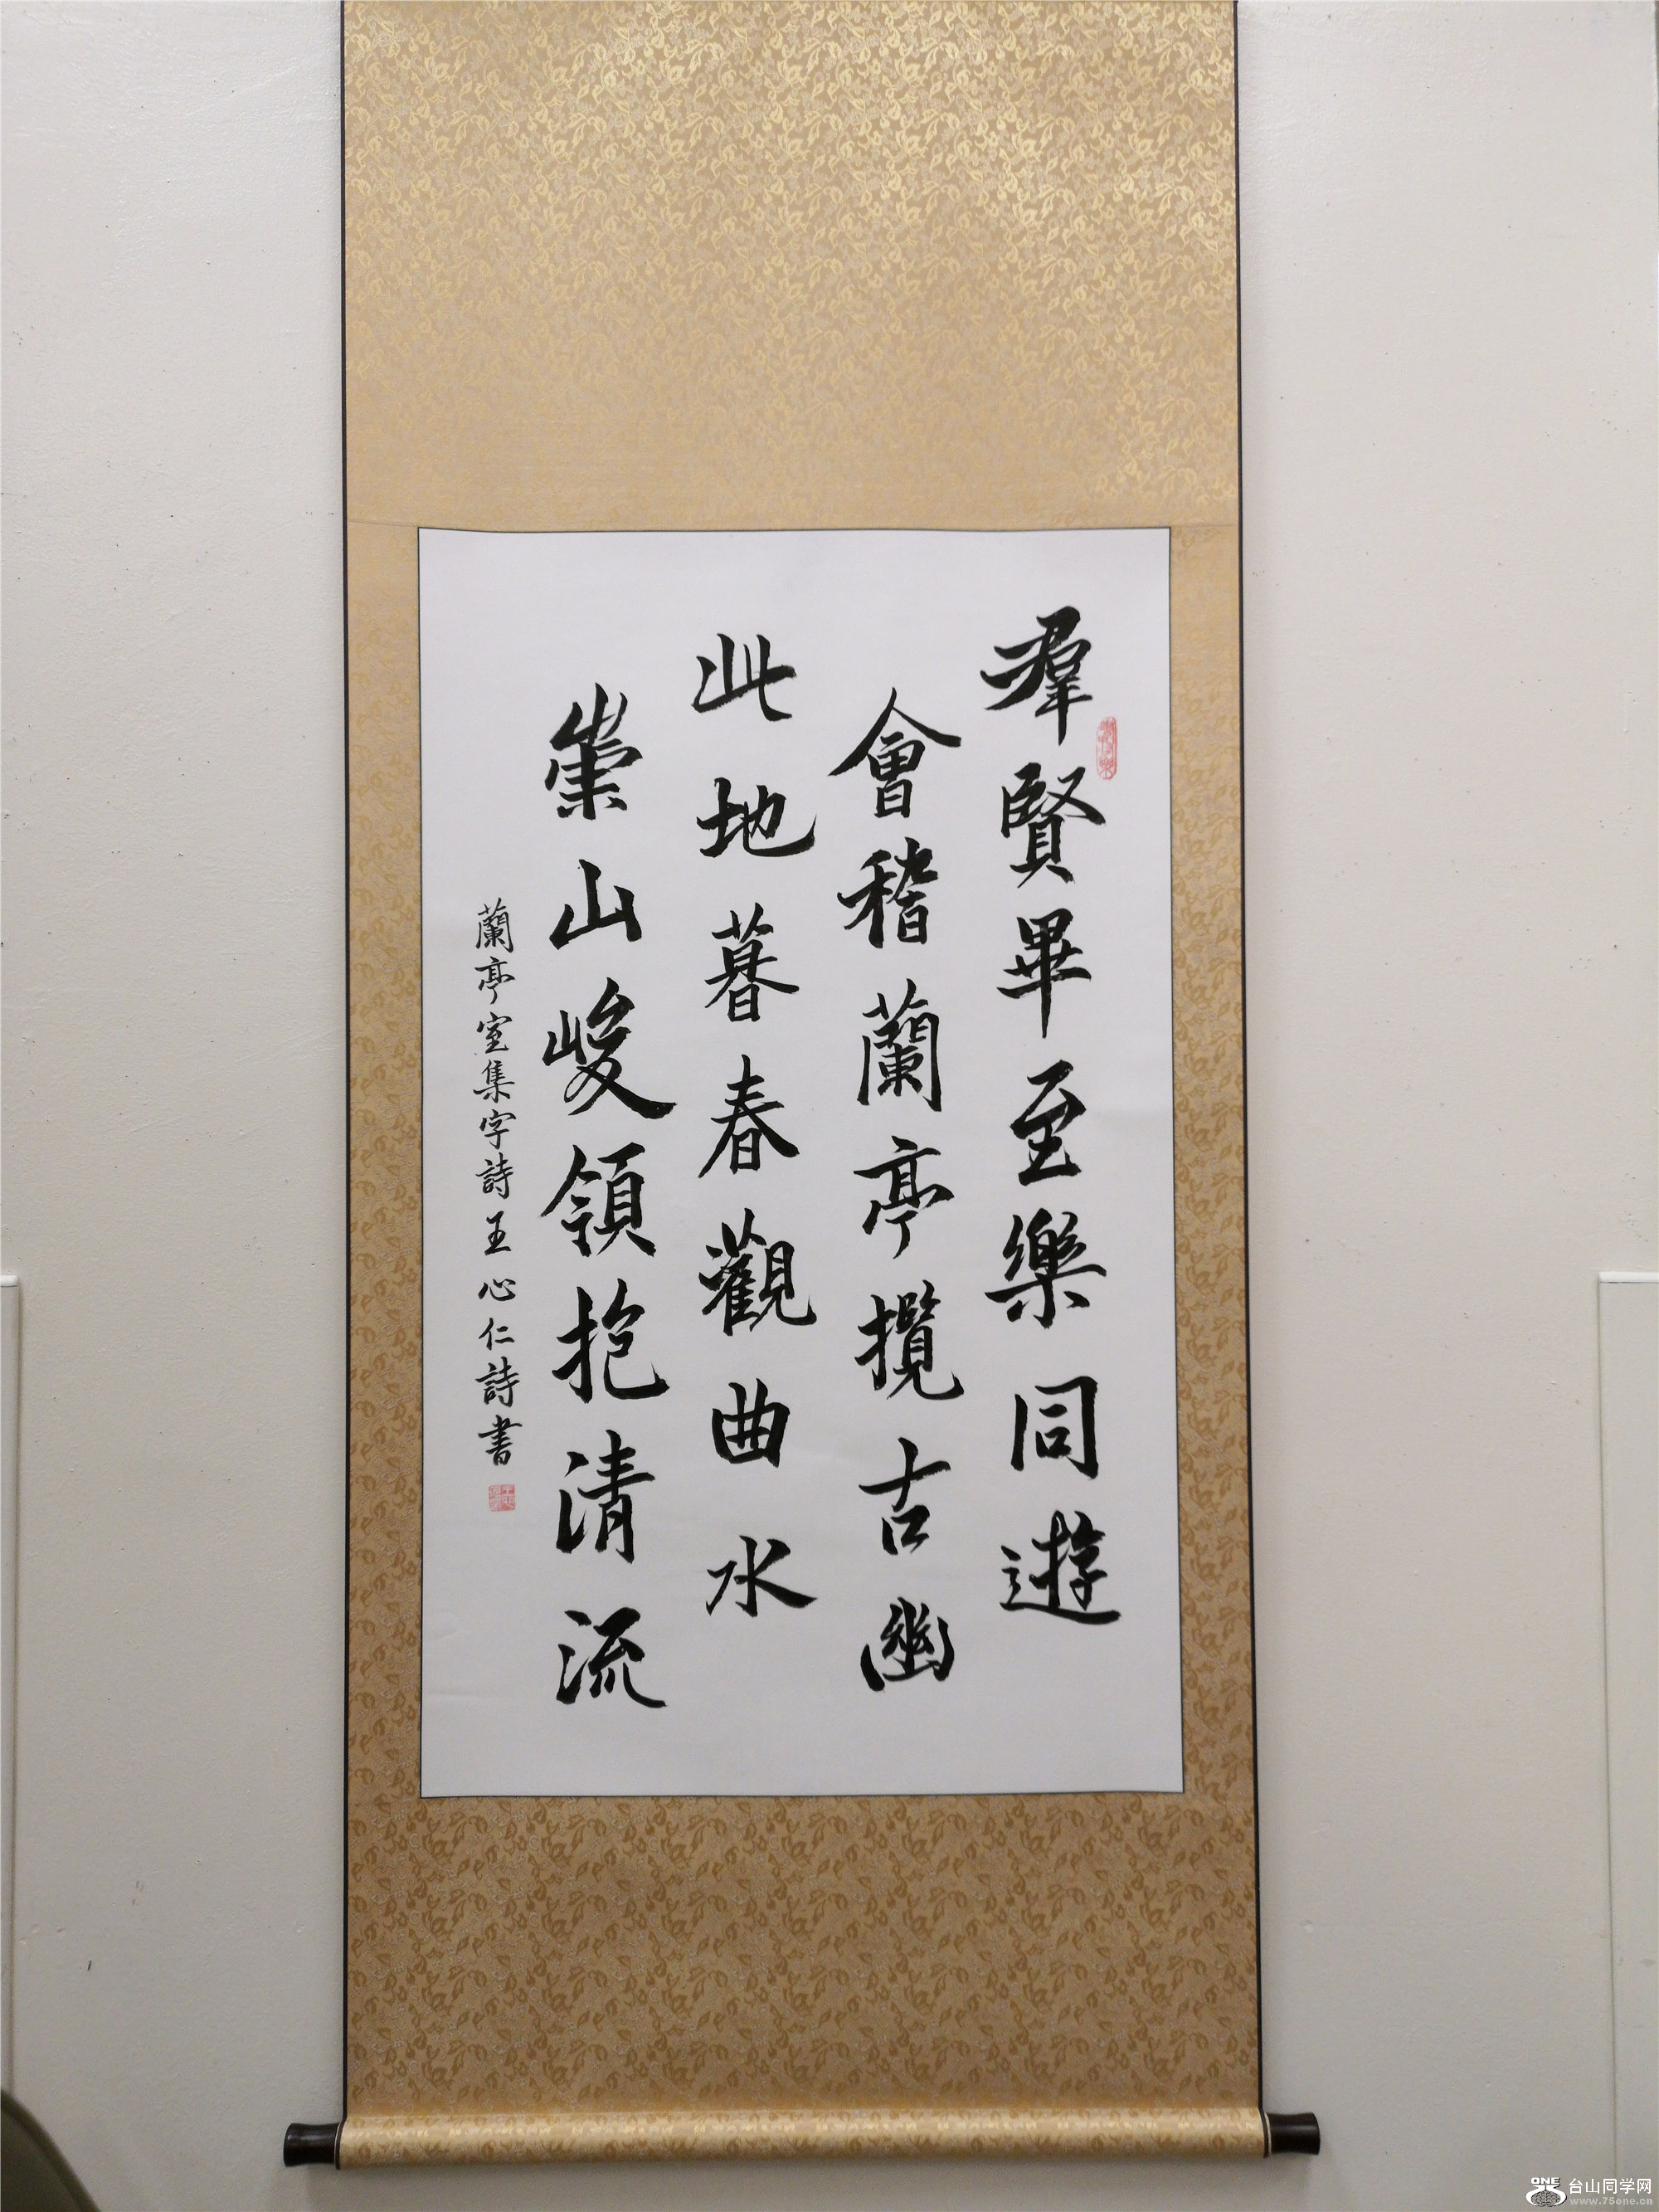 羣賢畢至樂同遊
會稽蘭亭攬古幽
此地暮春觀曲水
崇山峻領抱清流
蘭亭室集字詩王心仁詩書
ONE 台山同学网
www.75one.cn